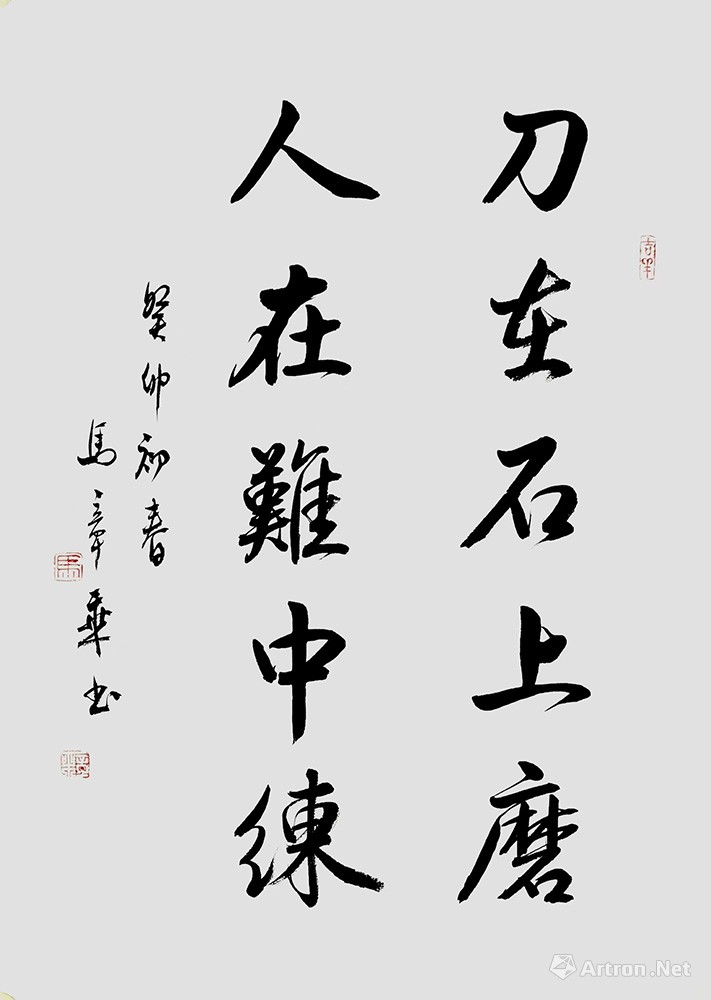 刀在石上磨
人在難中練
癸卯初春
馬章華书
Artron.Net